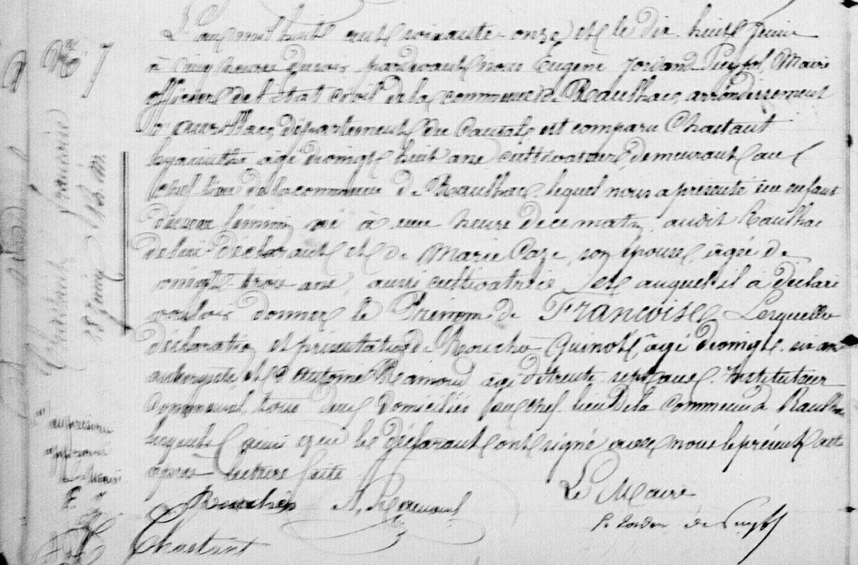 L'an mil huit cent soixante-onze et le dix huit Juin
à cinq heures du soir pardevant nous Eugène Jordand Puyfol Maire
officier de l'état civil de la commune de Raulhac, arrondissement
d'Aurillac, département du Cantal, est comparu Chastant
hyacinthe âgé de vingt huit ans cultivateur, demeurant au
chef lieu de la commune de Raulhac, lequel nous a présenté un enfant
du sexe féminin, né à une heure de ce matin, audit Raulhac
de lui déclarant et de Marie Caze, son épouse, âgée de
vingt-trois ans, aussi cultivatrice, et auquel il a déclaré
vouloir donner le Prénom de Françoise, Lesquelles
déclaration et présentation de âgé de vingt six ans
aubergiste et d'Antoine Ramond âgé de trente sept ans. Instituteur
Communal, tous deux domiciliés chef lieu de la commune de Raulhac
lesquels que le déclarant ont signé avec nous le présent acte
après lecture faite
A. Ramond
Le Maire
Chastant
N° 7
Chastant Françoise
18 Juin
approuvé
Le Maire